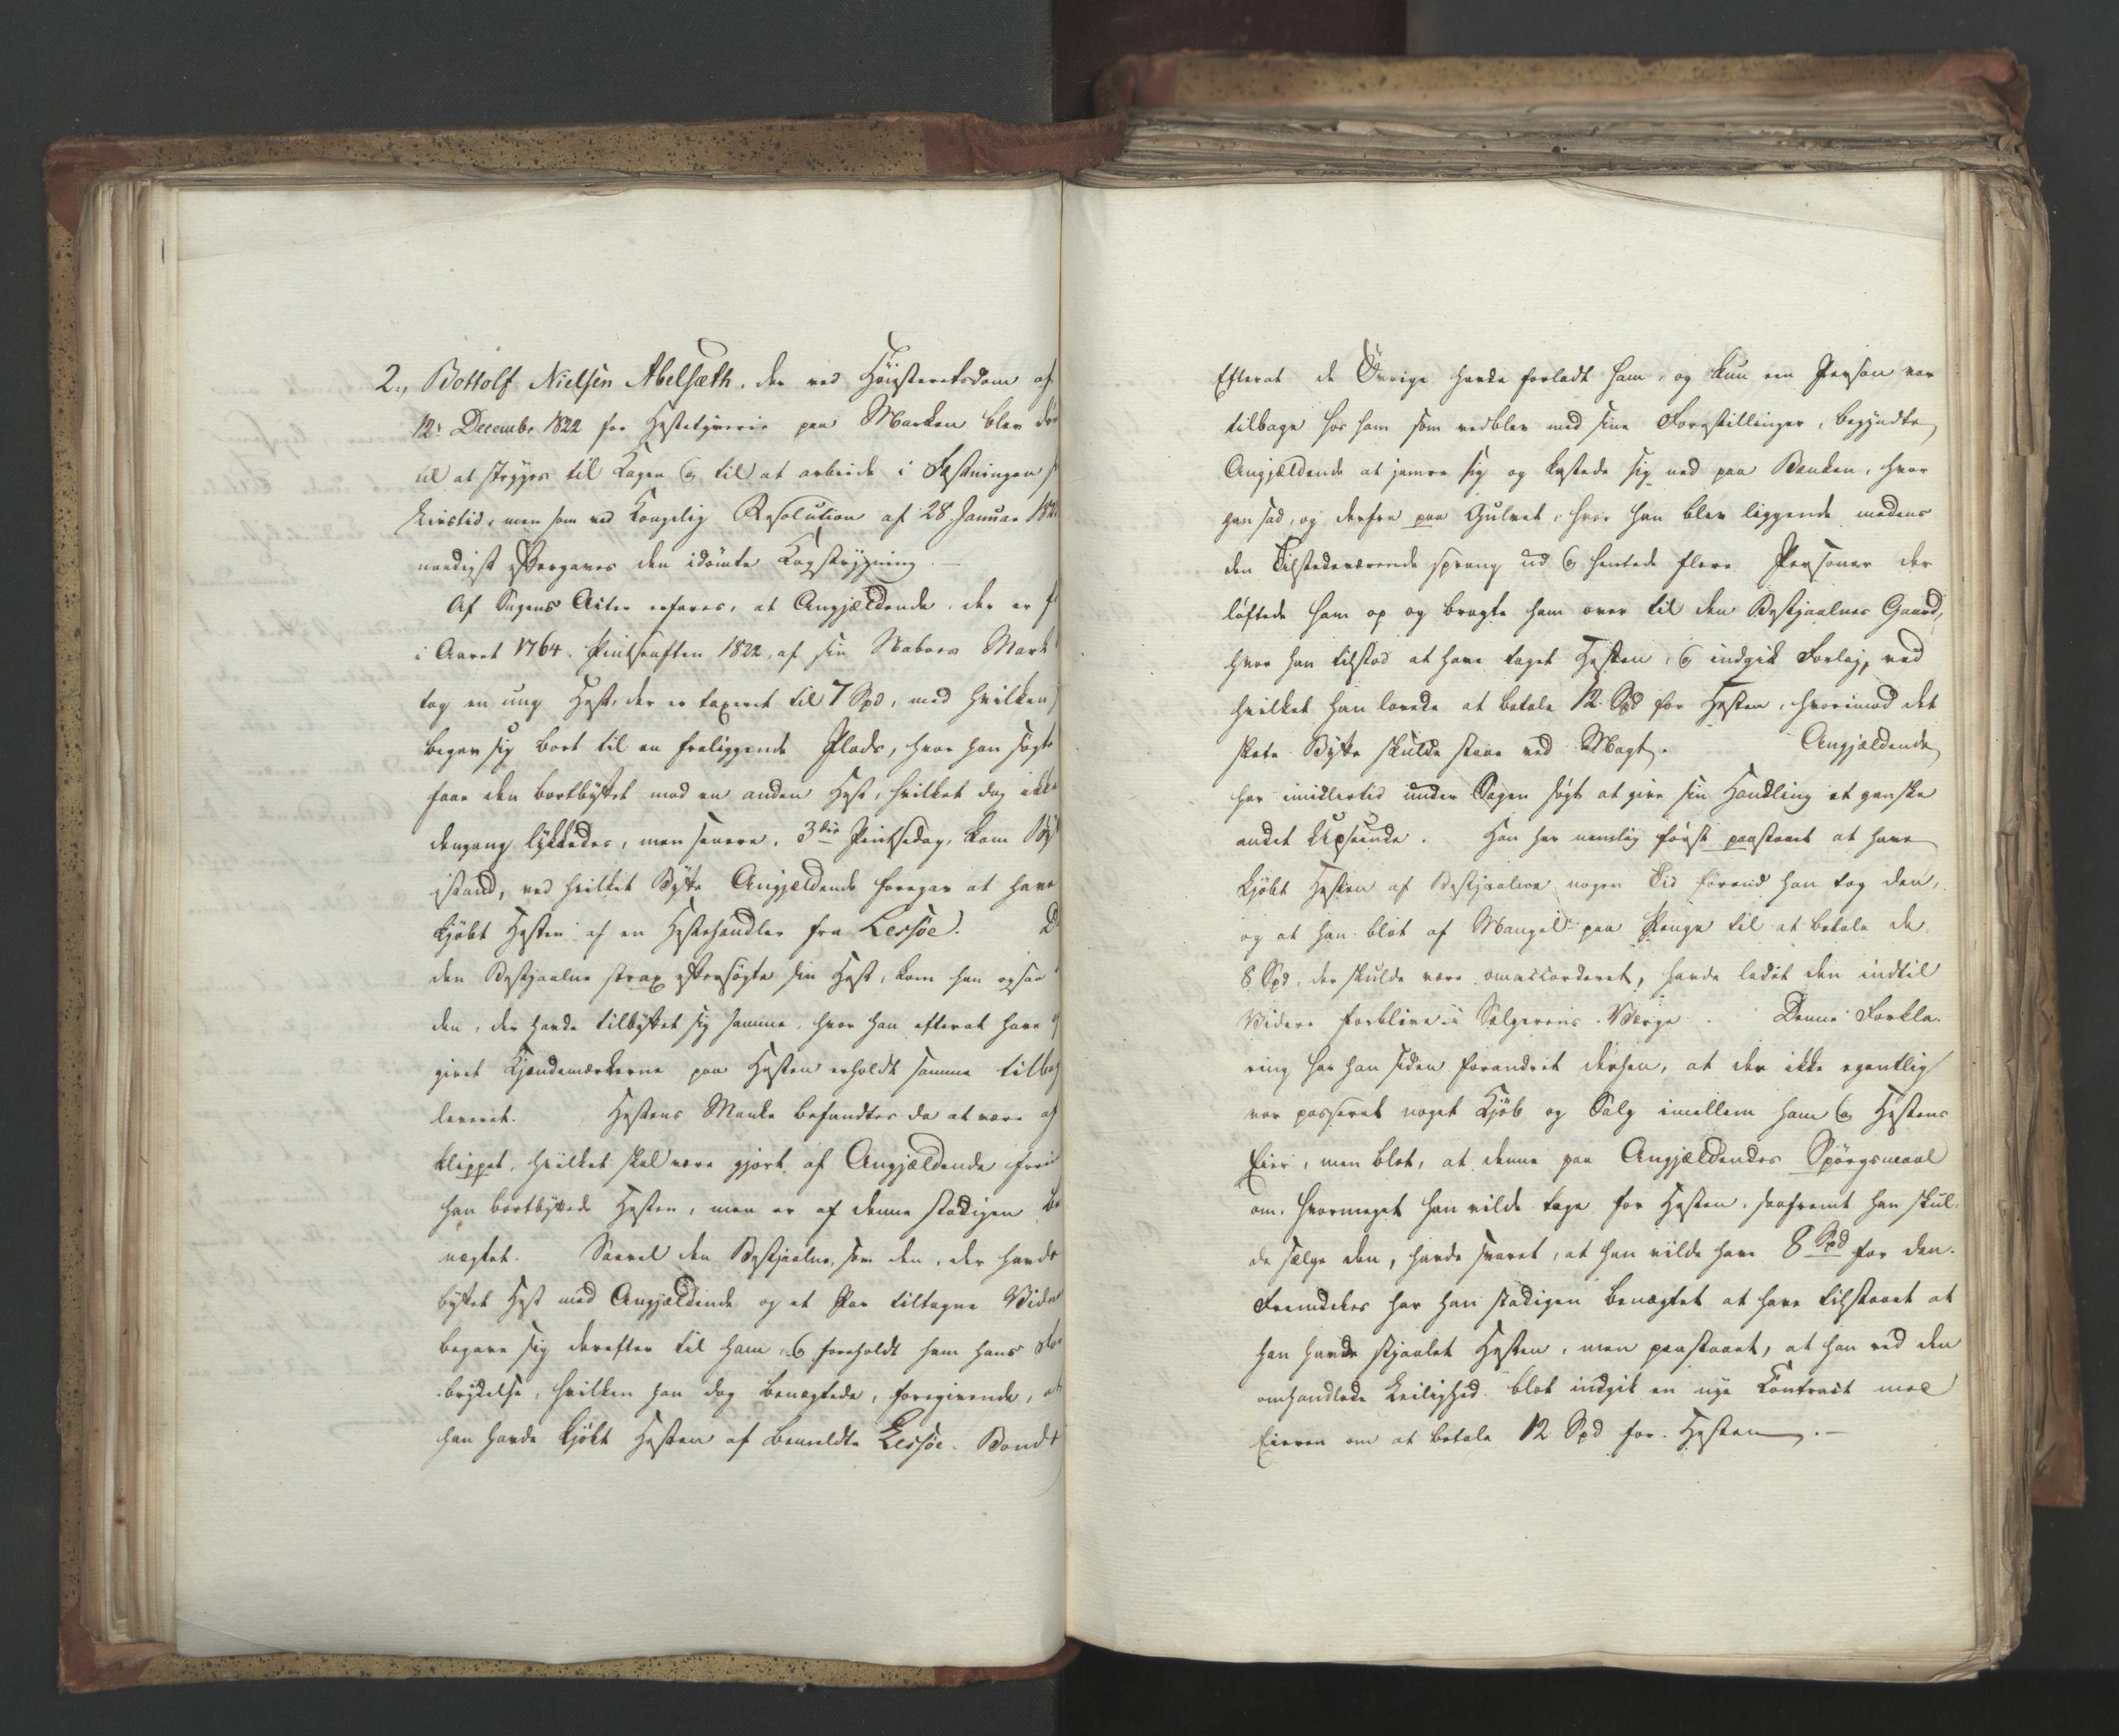 2., Bottolf Nielsen Abelsæth, der ved Høiesteretsdom af
12te December 1822 for Hestetyverie paa Marken blev dømt
til at stryges til Kagen og til at arbeide i Fæstningen paa
Livstid, men som ved Kongelig Resolution af 28 Januar
naadigst eftergaves den idømte Kagstrygning. —
Af Sagens Acter erfares, at Angjældende, der er
i Aaret 1764. Pintseaften 1822, af sin Naboes Mark
tog en ung Hest, der er taxeret til 7 Spd, med hvilken
begav sig bort til en fraliggende Plads, hvor han søgte
faae den bortbyttet mod en anden Hest, hvilket dog ikke
dengang lykkedes, men senere, 3die Pintsedag, kom
istand, ved hvilket Bytte Angjældende foregav at have
kjøbt Hesten af en Hestehandler fra Lessøe.
den Bestjaalne strax eftersøgte sin Hest, kom han ogsaa
den, der havde tilbyttet sig samme, hvor han efterat have
givet Kjændemærkerne paa Hesten erholdt samme tilbage
leveret. Hestens Manke befandtes da at være af
klippet, hvilket skal være gjort af Angjældende
han bortbyttede Hesten, men er af denne stadigen be
nægtet. Saavel den Bestjaalne, som den, der havde
byttet Hest med Angjældende og et Par tiltagne Vidner
begave sig derefter til ham og foreholdt ham hans For
brydelse, hvilken han dog benægtede, foregivende, at
han havde kjøbt Hesten af bemeldte Lessøe-Bonde
Efterat de Øvrige havde forladt ham, og kun een Person var
tilbage hos ham som vedblev med sine Forestillinger, begyndte
Angjældende at jamre sig og kastede sig ned paa Bænken, hvor
han sad, og derfra paa Gulvet, hvor han blev liggende medens
den Tilstedeværende sprang ud og hentede flere Personer der
løftede ham op og bragte ham over til den Bestjaalnes Gaard,
hvor han tilstod at have taget Hesten, og indgik Forlig, ved
hvilket han lovede at betale 12 Spd for Hesten, hvorimod det
skete Bytte skulde staae ved Magt. Angjældende
har imidlertid under Sagen søgt at give sin Handling et ganske
andet Udseende. Han har nemlig først paastaaet at have
kjøbt Hesten af Bestjaalne nogen Tid førend han tog den,
og at han blot af Mangel paa Penge til at betale de
8 Spd. der skulde være omaccorderet, havde ladet den indtil
Videre forblive i Sælgerens Værge. Denne Forkla-
ring har han siden forandret derhen, at der ikke egentlig
var passeret noget Kjøb og Salg imellem ham og Hestens
Eier, men blot, at denne paa Angjældendes Spørgsmaal
om, hvormeget han vilde tage for Hesten, saafremt han skul-
de sælge den, havde svaret, at han vilde have 8 Spd for den.
Fremdeles har han stadigen benægtet at have tilstaaet at
han havde stjaalet Hesten, men paastaaet, at han ved den
omhandlede Leilighed blot indgik en nye Contract med
Eieren om at betale 12 Spd for Hesten. —